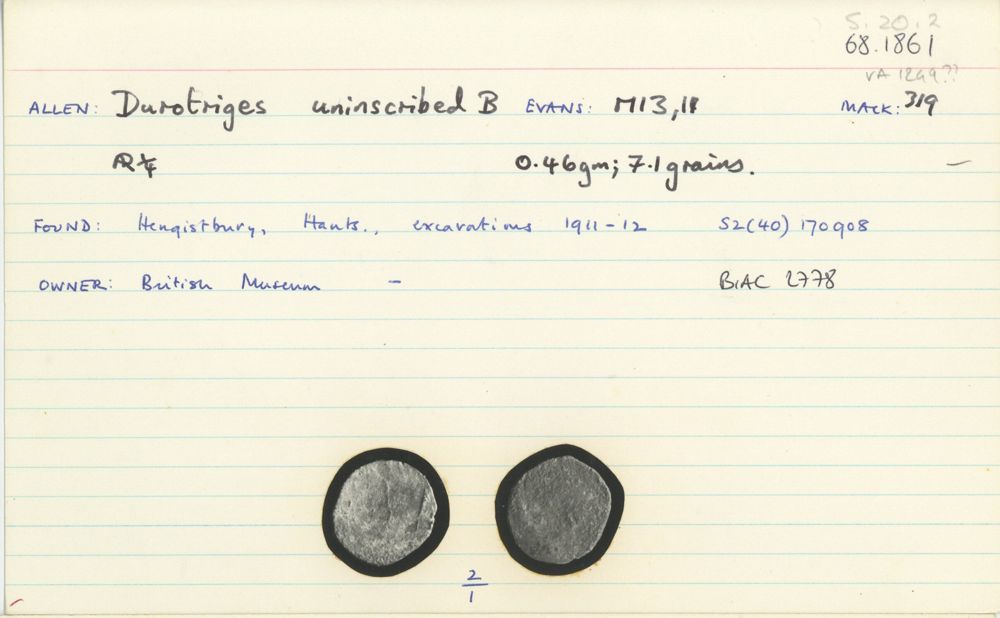 S.20.2
68.1861
VA 1249??
ALLEN: Durotriges uninscribed B EVANS: M13,11 MACK: 319
AR ¼ 0.46gm; 7.1 grains. —
FOUND: Hengistbury, Hants., excavations 1911-12 SZ(40) 170908
OWNER: British Museum – BIAC 2778
2
1